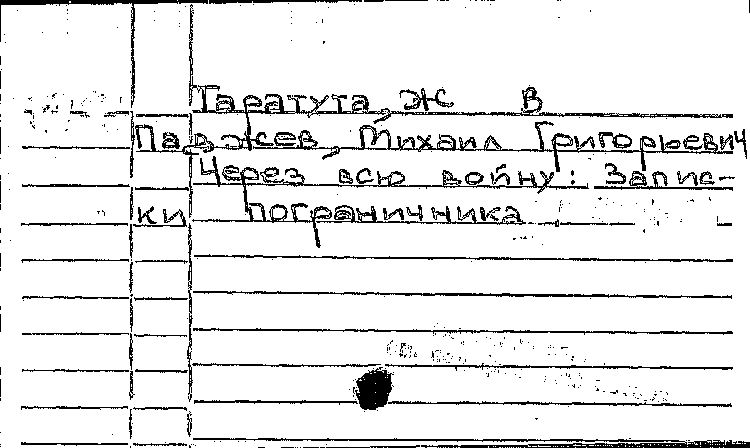 Таратута, Ж В
Паджев, Михаил Григорьевич
Через всю войну: Запис-
ки пограничника